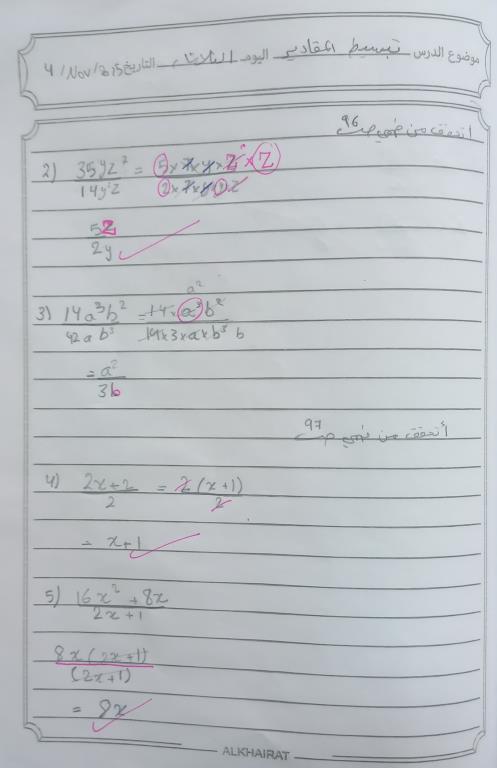 موضوع الدرس تبسيط المقادير اليوم الثلاثاء التاريخ 4/Nov/2025
أتحقق من فهمي ص 96
2) 35yz² / 14y²z = 5×7×y×z×z / 2×7×y×y×z
5z / 2y
3) 14a³b² / 42ab³ = 14×a³b² / 14×3×a×b³
a²
b
= a² / 3b
أتحقق من فهمي ص 97
4) 2x+2 / 2 = 2(x+1) / 2
= x+1
5) 16x² + 8x / 2x+1
8x(2x+1) / (2x+1)
= 8x
ALKHAIRAT